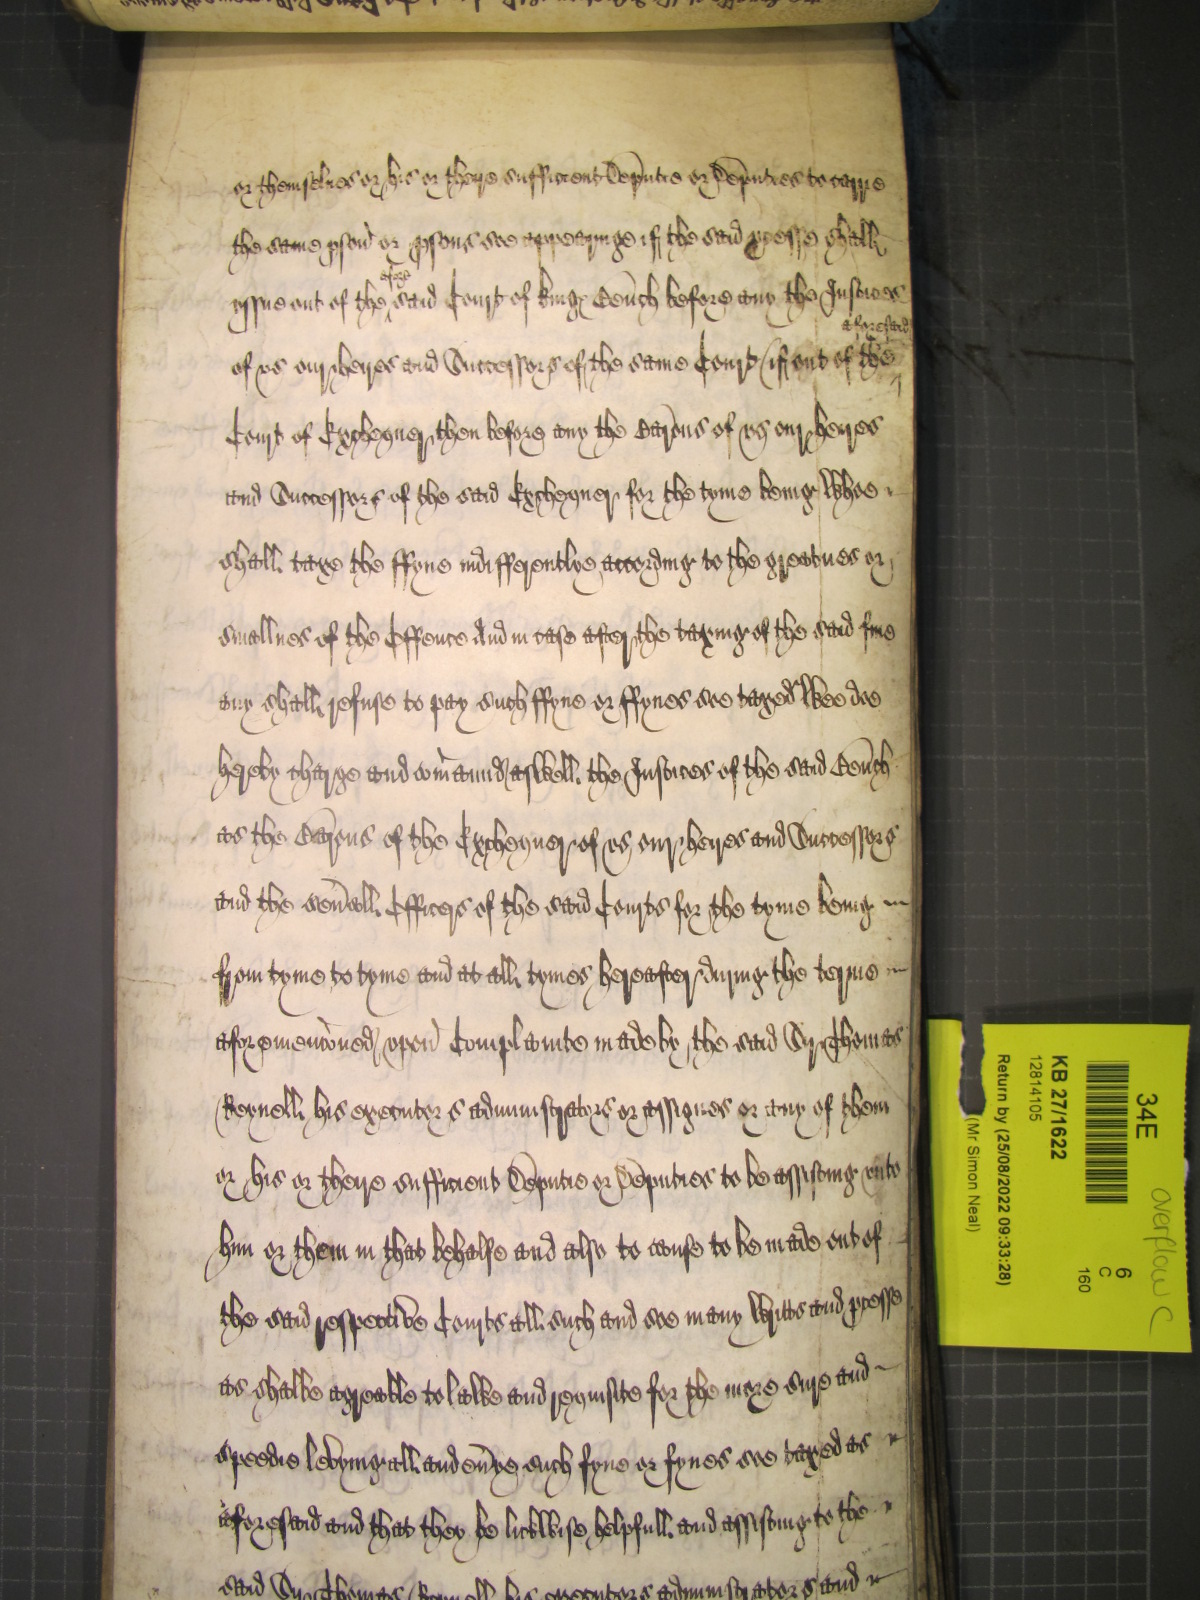 or themselves or his or theire sufficient Deputie or Deputies to carrie
the same pson or psons soe appearinge if the said pcesse shall
issue out of the afore said Court of Kings Bench before any the Justices
of vs our heires and Successors of the same Court if out of the aforesaid
Court of Exchequer then before any the Barons of vs our heires
and Successors of the said Exchequer for the tyme being Whoe
shall taxe the ffyne indifferentlye according to the greatnes or
smallnes of the Offence And in case after the taxing of the said fine
any shall refuse to pay such ffyne or ffynes soe taxed Wee doe
hereby charge and comaund aswell the Justices of the said Bench
as the Barons of the Exchequer of vs our heires and Successors
and the seuall Officers of the said Courts for the tyme being
from tyme to tyme and at all tymes hereafter during the terme
aforemenconed vpon Complainte made by the said Sir Thomas
Reynell his executors administrators or assignes or any of them
or his or theire sufficient Deputie or Deputies to be assisting vnto
him or them in that behalfe and also to cause to be made out of
the said respective Courts all such and soe many Writts and pcesse
as shalbe agreable to lawe and requisite for the more sure and
speedie levying all and euye such fyne or fynes soe taxed as
aforesaid and that they be lickwise helpfull and assisting to the
said Sir Thomas Reynell his executors administrators and
34E
overflow C
KB 27/1622
12814105
Return by (25/08/2022 09:33:28)
(Mr Simon Neal)
6
C
160